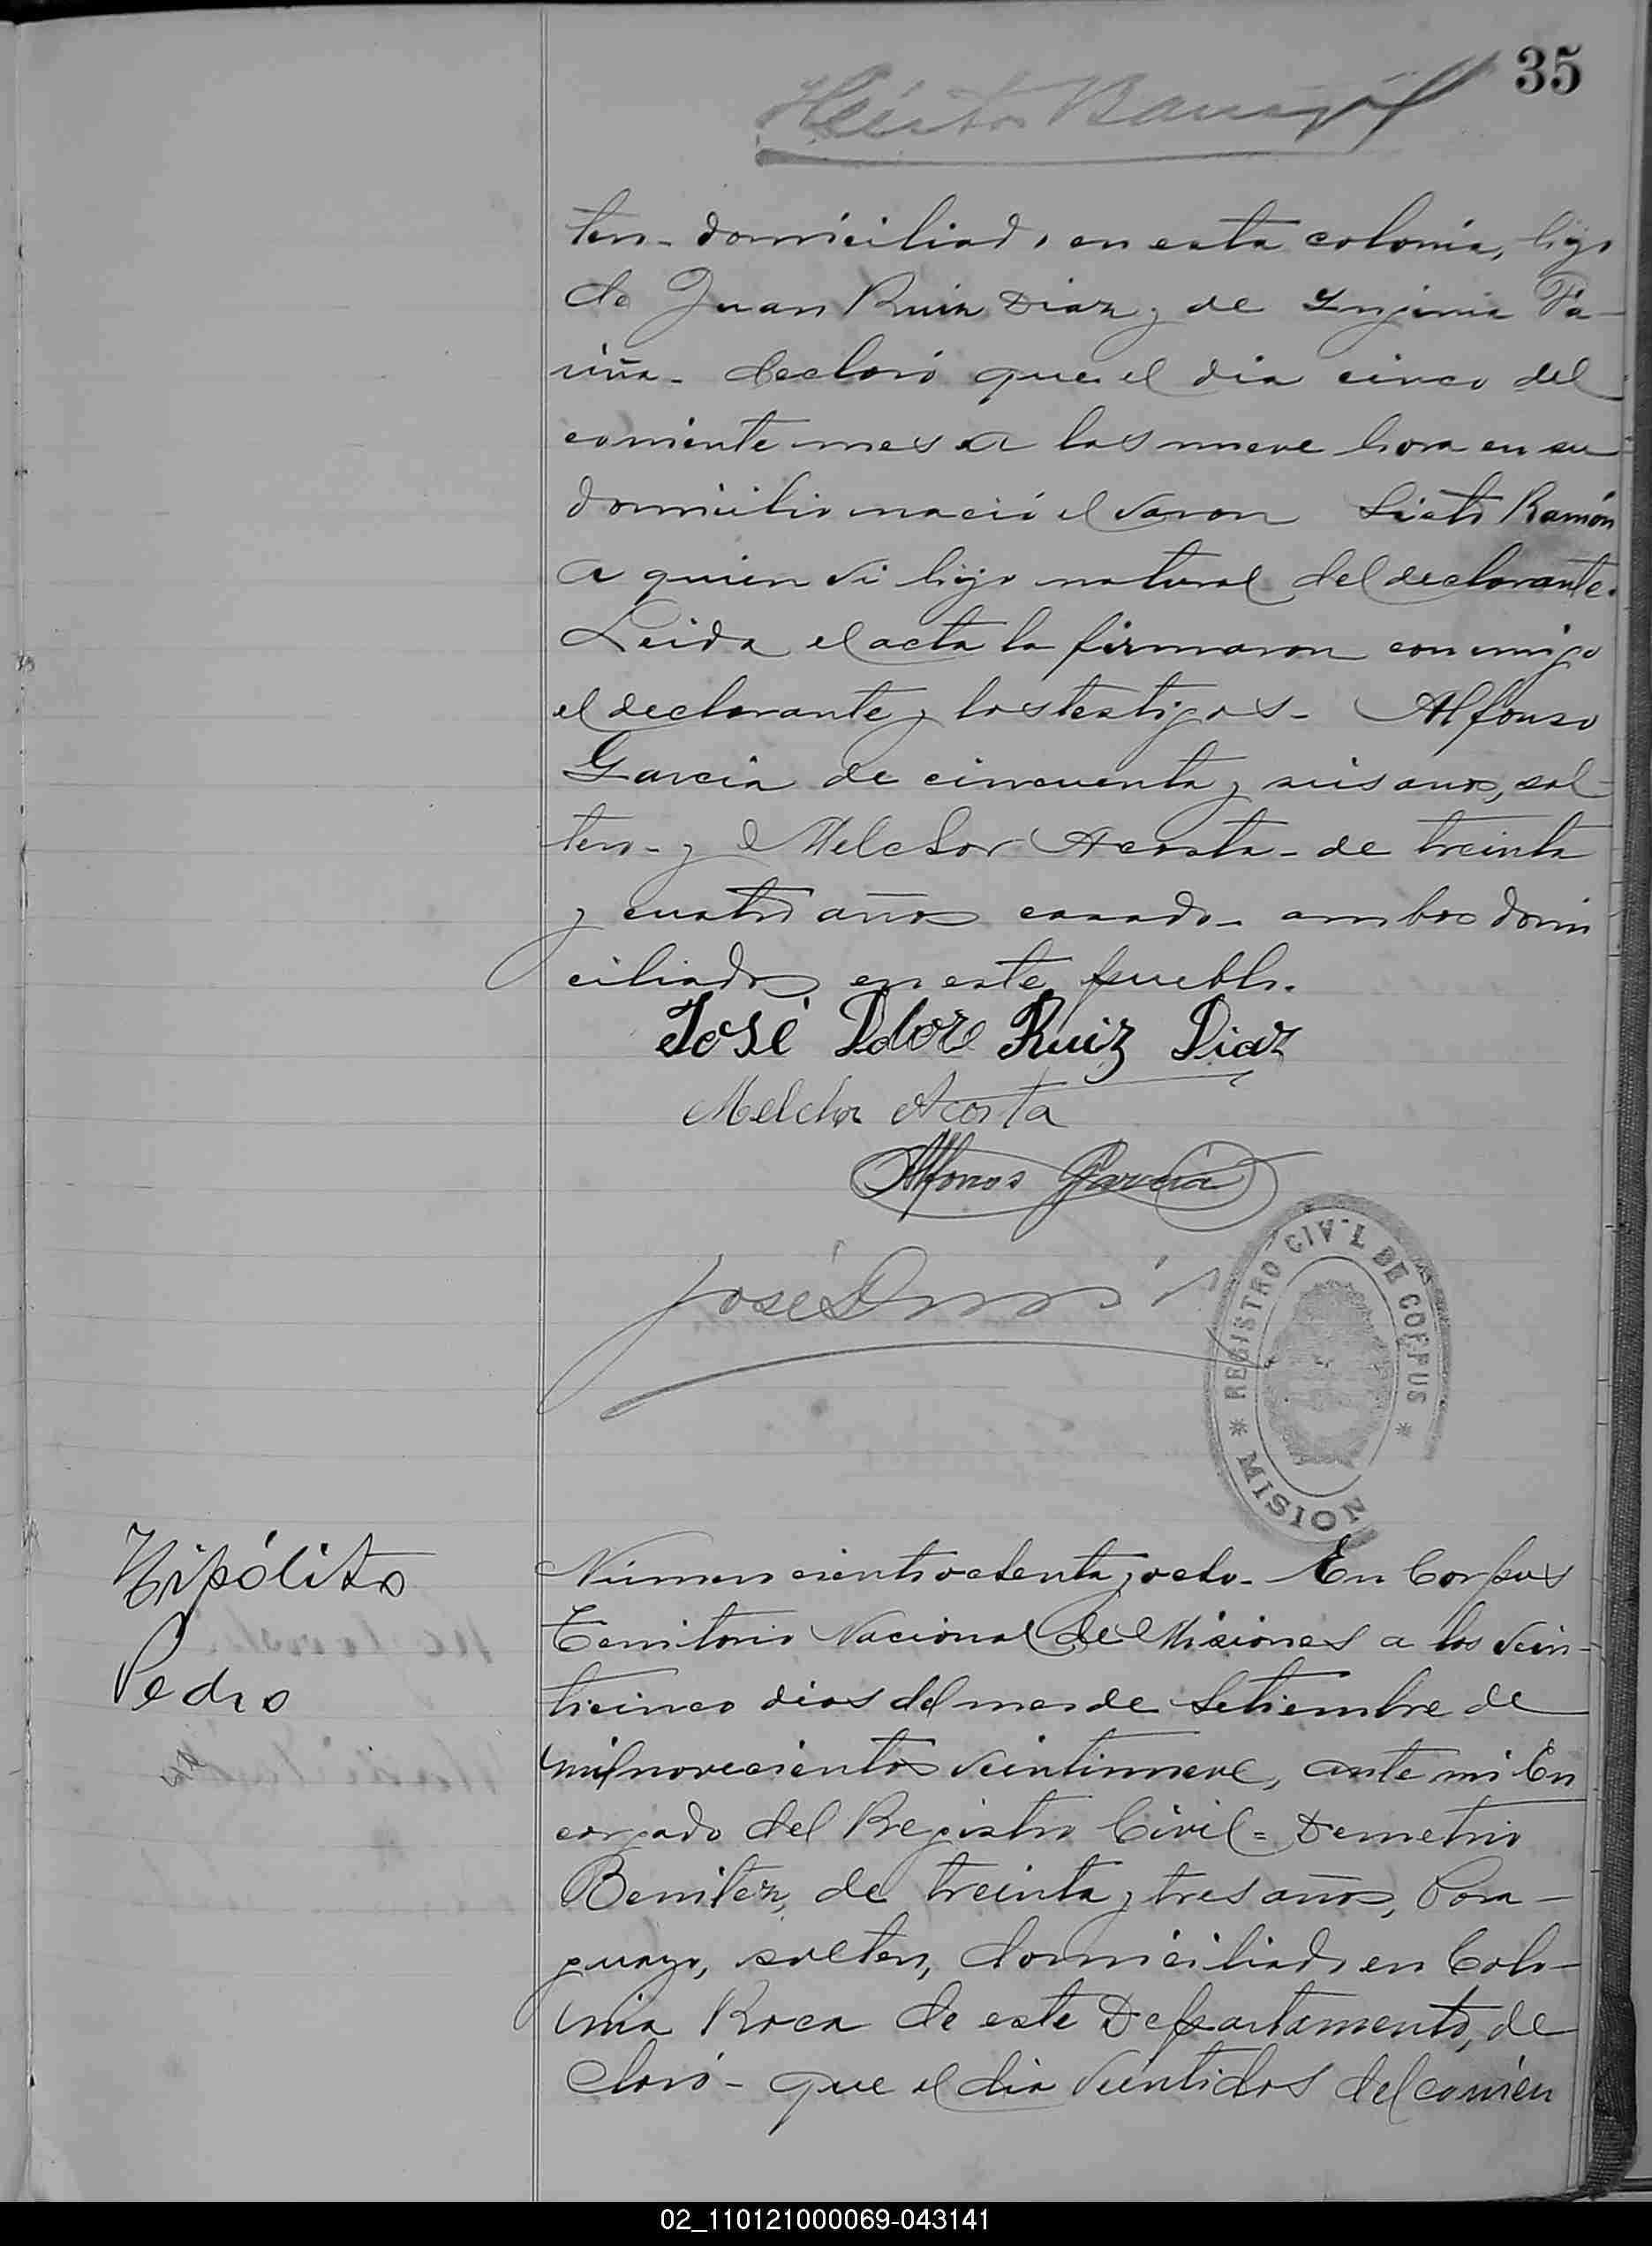 35
Héctor
tero- domiciliado en esta colonia, hijo
de Juan Ruiz Diaz y de Fa-
riña- declaró que el dia cinco del
corriente mes a las nueve hora en su
domicilio nació el varon Sixto Ramón
a quien vi hijo natural del declarante.
Leida el acta la firmaron conmigo
el declarante y los testigos- Alfonso
Garcia de cincuenta y seis anos, sol-
tero- y Melchor Acosta- de treinta
y cuatro años casado- ambos domi
ciliados en este pueblo.
José Idore Ruiz Diaz
Melchor Acosta
Alfonso Garcia
José
REGISTRO CIVIL DE CORPUS
* MISION *
Hipólito
Pedro
Número cientoochenta y ocho- En Corpus
Territorio Nacional de Misiones a los vein-
ticinco dias del mes de Setiembre de
milnovecientos veintinueve, ante mi En
cargado del Registro Civil = Demetrio
Benitez, de treinta y tres años, Para-
guayo, soltero, domiciliado en Colo-
nia Roca de este Departamento, de
claró- que el dia veintidos del corrien
02_110121000069-043141